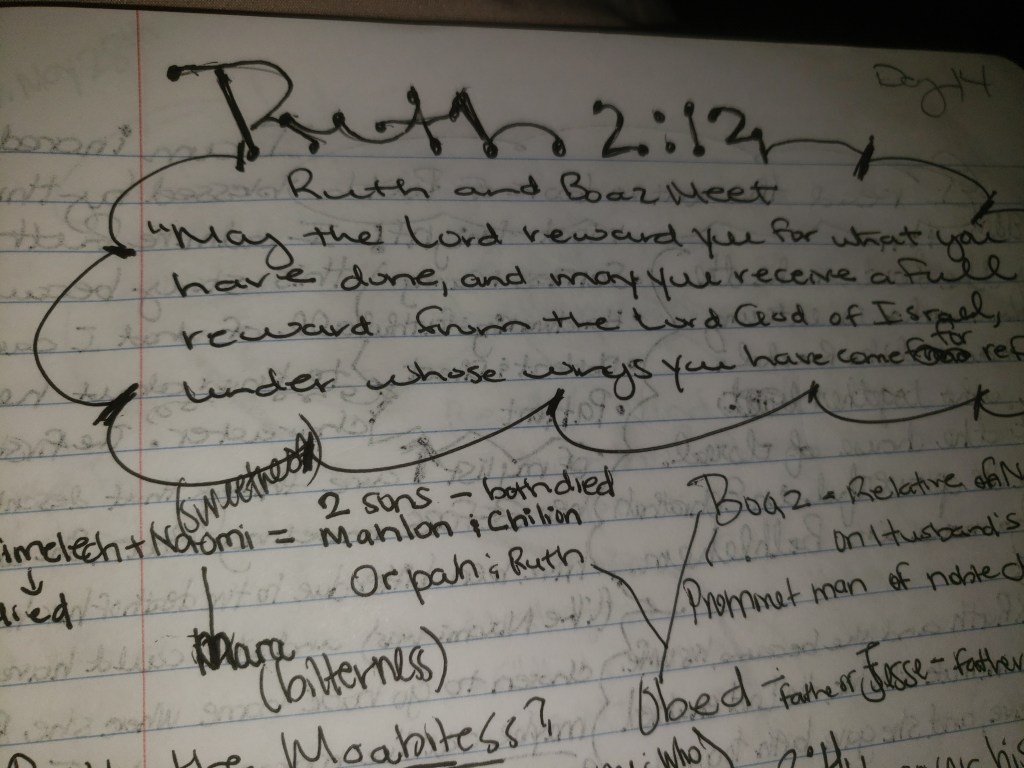 Day 14
Ruth 2:12
Ruth and Boaz Meet
"May the Lord reward you for what you
have done, and may you receive a full
reward from the Lord God of Israel,
under whose wings you have come for ref
(sweetness)
imelech + Naomi = 2 sons - both died
Mahlon & Chilion
Orpah & Ruth
died
Mara
(bitterness)
Boaz - Relative of N
on Husband's
Prommet man of noble c
Obed - father of Jesse - father
the Moabitess?
who)